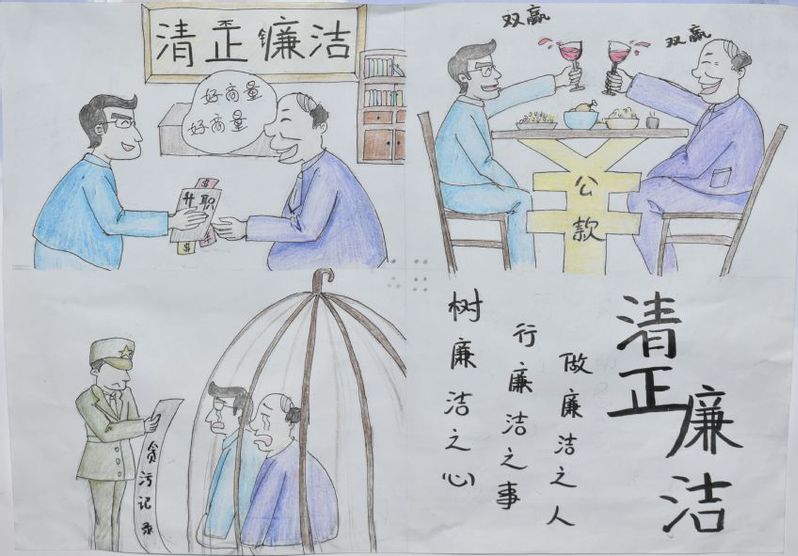 清正镰洁
好商量
好商量
$
升职
$
双赢
双赢
公款
贪污记录
树廉洁之心
行廉洁之事
做廉洁之人
清正
廉洁